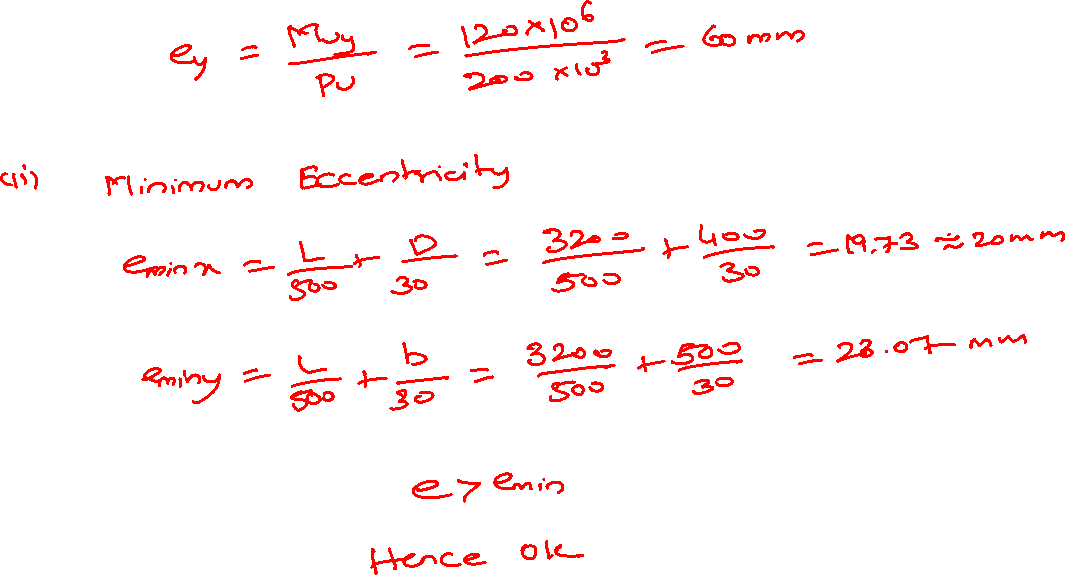 ey = Muy/Pu = 120×10⁶/200×10³ = 60 mm
(ii) Minimum Eccentricity
emin x = L/500 + D/30 = 3200/500 + 400/30 = 19.73 ≈ 20mm
eminy = L/500 + b/30 = 3200/500 + 500/30 = 23.07 mm
e > emin
Hence ok